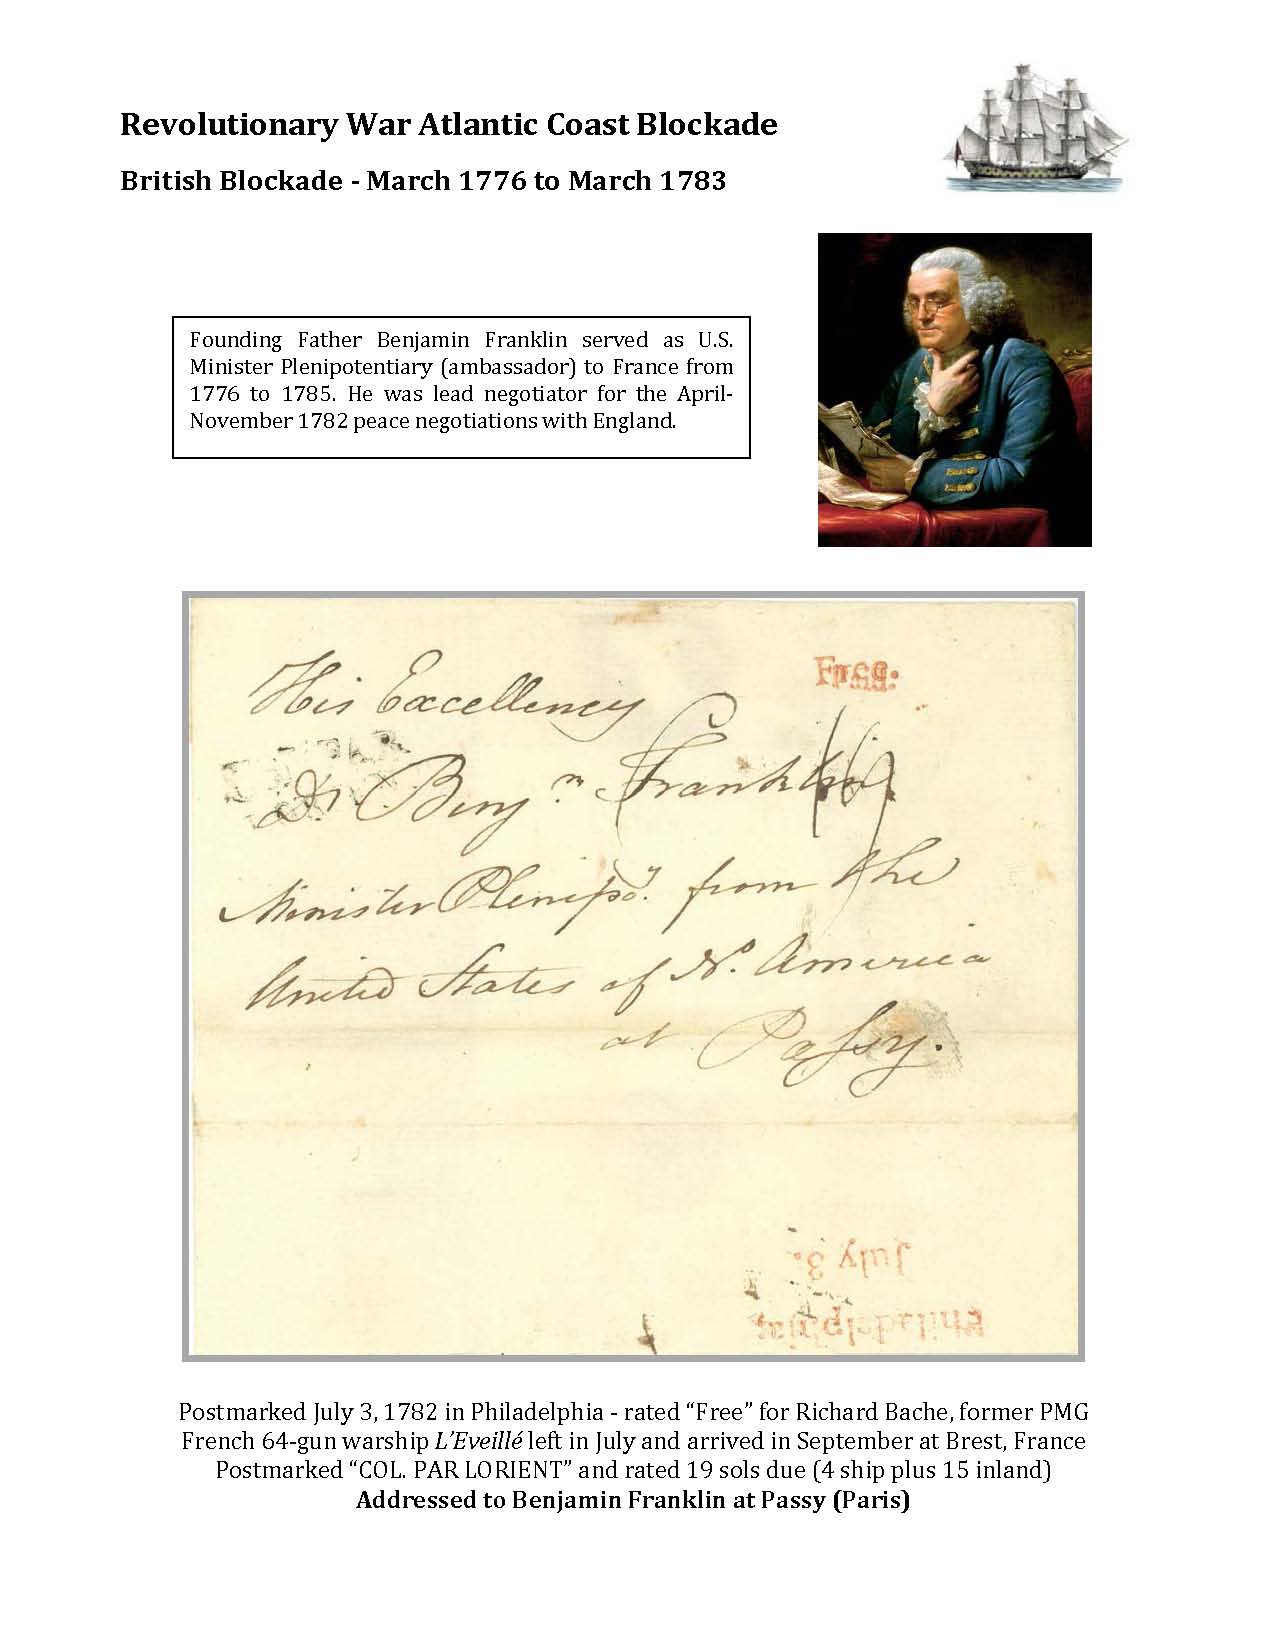 Revolutionary War Atlantic Coast Blockade
British Blockade - March 1776 to March 1783
Founding Father Benjamin Franklin served as U.S.
Minister Plenipotentiary (ambassador) to France from
1776 to 1785. He was lead negotiator for the April-
November 1782 peace negotiations with England.
Free:
His Excellency
Dr Benjn Franklin
Minister Plenipoy. from the
United States of No. America
at Passy.
July 3.
Philadelphia
Postmarked July 3, 1782 in Philadelphia - rated “Free” for Richard Bache, former PMG
French 64-gun warship L’Eveillé left in July and arrived in September at Brest, France
Postmarked “COL. PAR LORIENT” and rated 19 sols due (4 ship plus 15 inland)
Addressed to Benjamin Franklin at Passy (Paris)